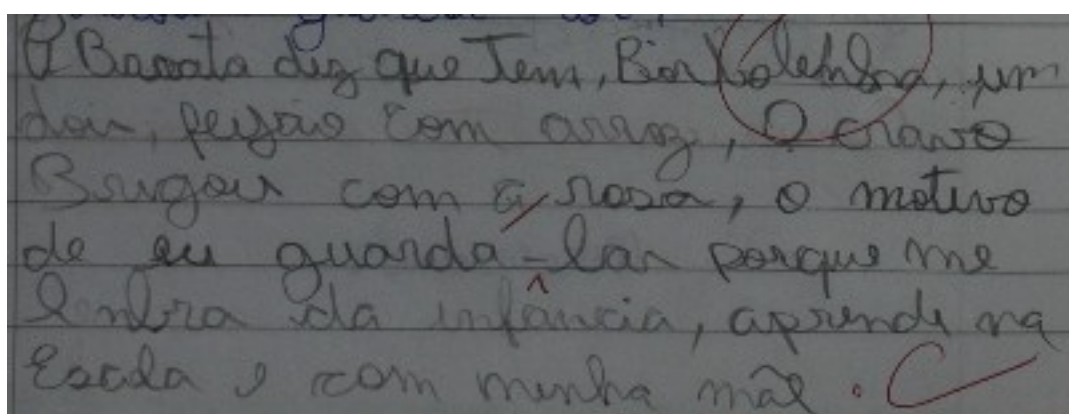 A Barata diz que Tem, Borboletinha, um
dois, feijão com arroz, O cravo
Brigou com a rosa, o motivo
de eu guardá-las porque me
lembra da infância, aprende na
Escola e com minha mãe.